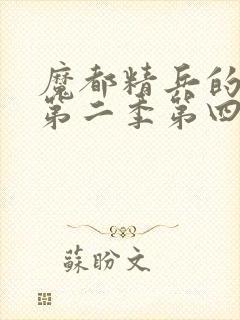 魔都精兵的
第二季第四
蘇盼文